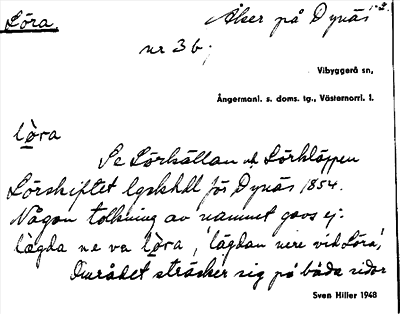 Löra. Åker på Dynäs 1-2.
nr 36;
Vibyggerå sn,
Ångermanl. s. doms. tg., Västernorrl. l.
lò̱ra
Se Lörkällan ok Lörkläppen
Lörskiftet lgskhdl för Dynäs 1854.
Någon tolkning av namnet gavs ej.
lägda ne ve lò̱ra, 'lägdan nere vid Löra',
Området sträcker sig på båda sidor
Sven Hiller 1948